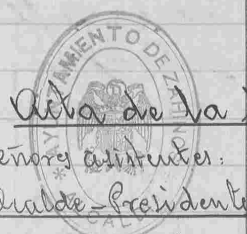 AYUNTAMIENTO DE
ALCALD
Acta de la
eñores asistentes:
lcalde-Presidente